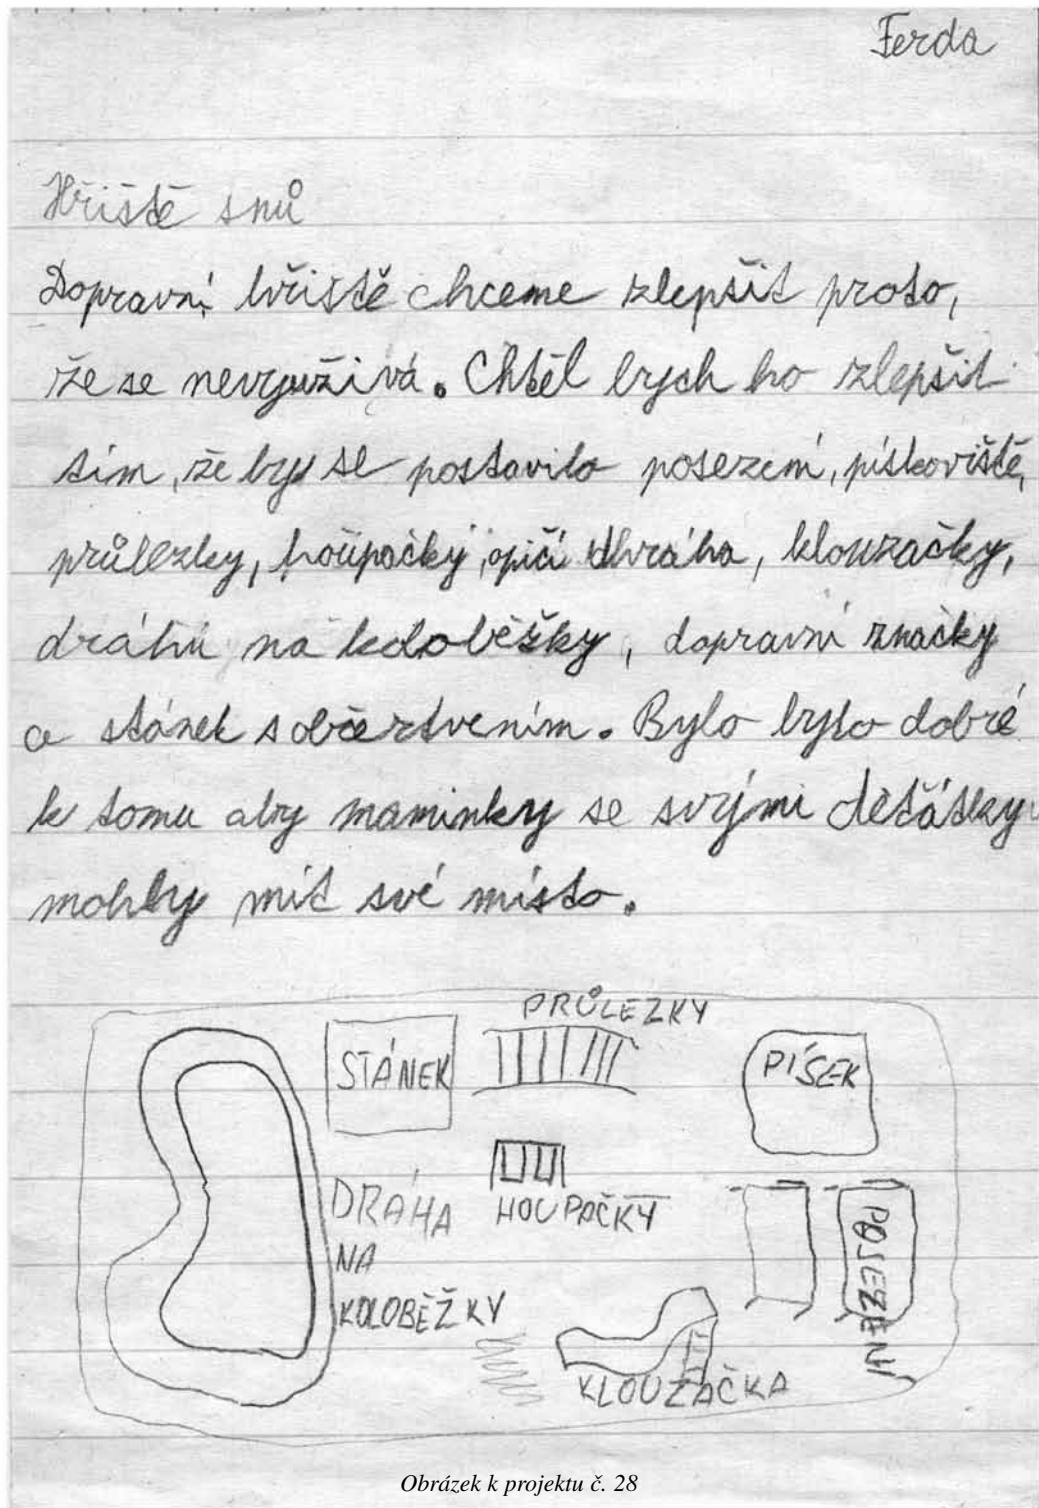 Ferda
Hřiště snů
Dopravní hřiště chceme zlepšit proto,
že se nevyužívá. Chtěl bych ho zlepšit
tím, že by se postavilo posezení, pískoviště,
průlezky, houpačky, opičí dhráha, klouzačky,
dráhu na koloběžky, dopravní značky
a stánek s občerstvením. Bylo bylo dobré
k tomu aby maminky se svými děťátky
mohly mít své místo.
PRŮLEZKY
STÁNEK
PÍSEK
DRÁHA
NA
KOLOBĚŽKY
HOUPAČKY
POSEZENÍ
KLOUZAČKA
Obrázek k projektu č. 28